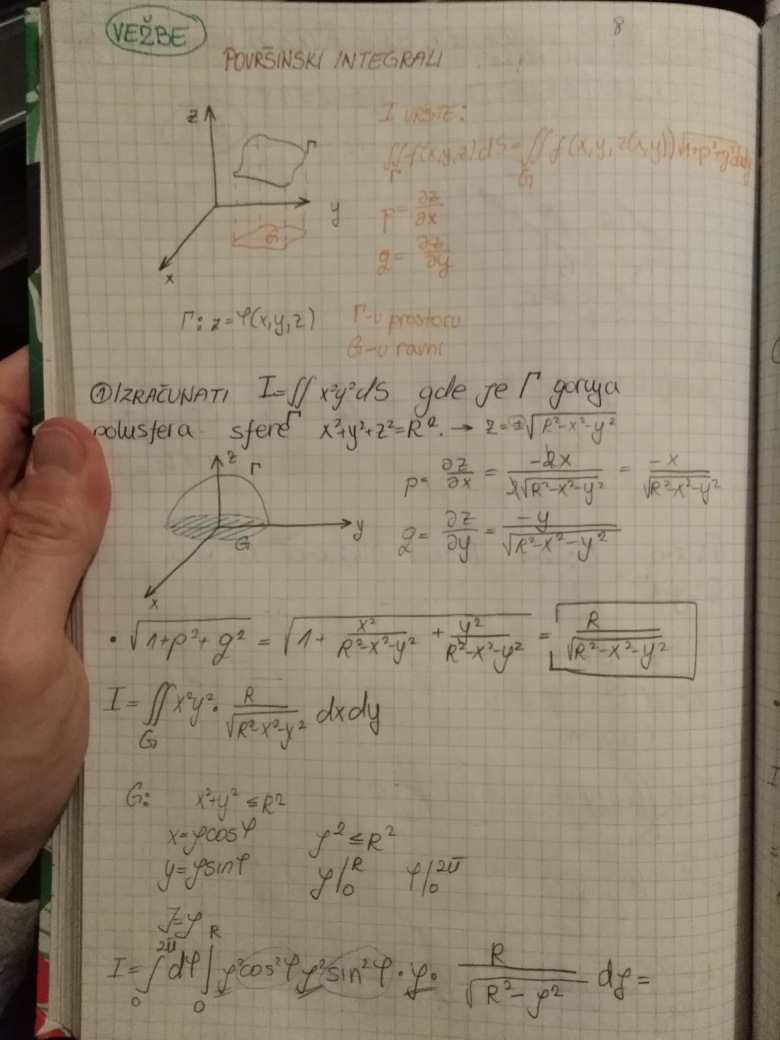 VEŽBE
8
POVRŠINSKI INTEGRALI
z
Γ
y
G
x
I VRSTE:
∬_Γ f(x,y,z)dS = ∬_G f(x,y,z(x,y))√(1+p²+q²) dxdy
p = ∂z/∂x
q = ∂z/∂y
Γ: z=φ(x,y,z) Γ-u prostoru
G-u ravni
① IZRAČUNATI I=∬_Γ x²y²dS gde je Γ gornja
polusfera sfere x²+y²+z²=R². → z=±√(R²-x²-y²)
z
Γ
y
G
x
p = ∂z/∂x = -2x/(2√(R²-x²-y²)) = -x/√(R²-x²-y²)
q = ∂z/∂y = -y/√(R²-x²-y²)
• √(1+p²+q²) = √(1 + x²/(R²-x²-y²) + y²/(R²-x²-y²)) = R/√(R²-x²-y²)
I = ∬_G x²y² · R/√(R²-x²-y²) dxdy
G: x²+y² ≤ R²
x=ρcosφ ρ² ≤ R²
y=ρsinφ ρ|₀^R φ|₀^2π
J=ρ
I = ∫₀^2π dφ ∫₀^R ρ²cos²φ ρ²sin²φ · ρ · R/√(R²-ρ²) dρ =